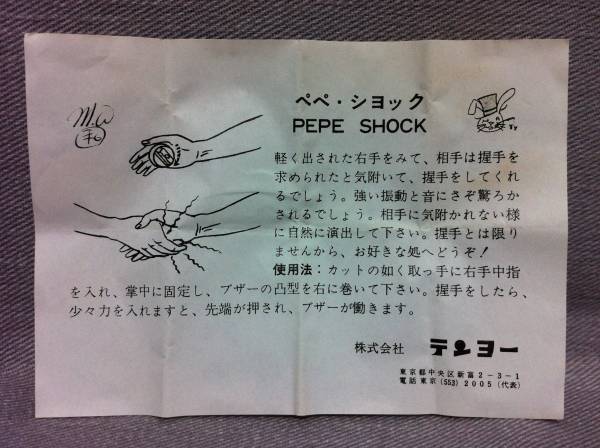 ペペ・ショック
PEPE SHOCK
軽く出された右手をみて、相手は握手を
求められたと気附いて、握手をしてくれ
るでしょう。強い振動と音にさぞ驚ろか
されるでしょう。相手に気附かれない様
に自然に演出して下さい。握手とは限り
ませんから、お好きな処へどうぞ！
使用法：カットの如く取っ手に右手中指
を入れ、掌中に固定し、ブザーの凸型を右に巻いて下さい。握手をしたら、
少々力を入れますと、先端が押され、ブザーが働きます。
株式会社 テンヨー
東京都中央区新富2-3-1
電話東京(553)2005(代表)